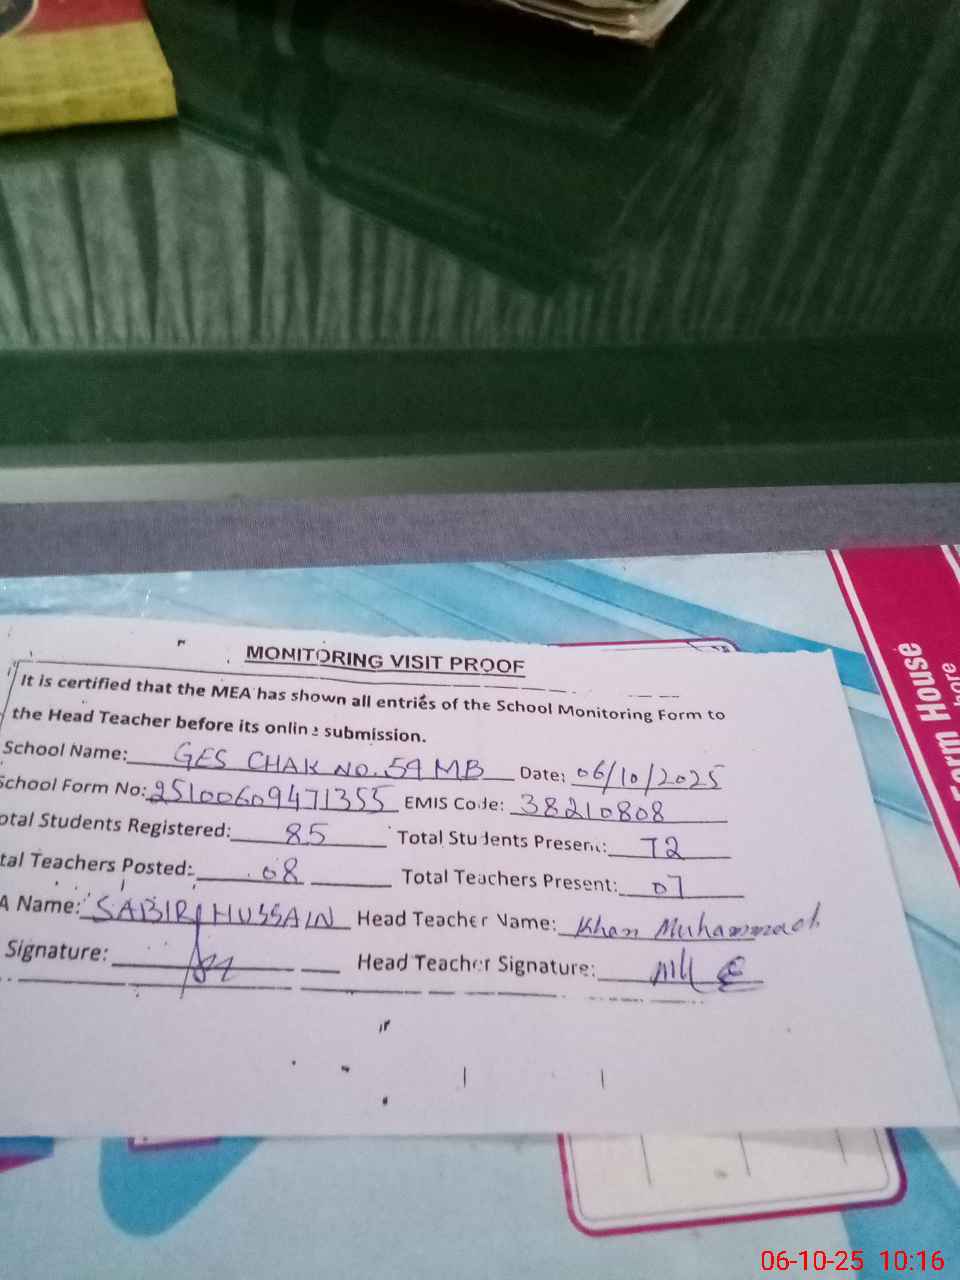 MONITORING VISIT PROOF
It is certified that the MEA has shown all entries of the School Monitoring Form to
the Head Teacher before its online submission.
School Name: GES CHAK NO. 59 MB Date: 06/10/2025
School Form No: 25100609471355 EMIS Code: 38210808
otal Students Registered: 85 Total Students Present: 72
tal Teachers Posted: 08 Total Teachers Present: 07
A Name: SABIR HUSSAIN Head Teacher Name: Khan Muhammad
Signature: Head Teacher Signature:
Form House
hore
06-10-25 10:16